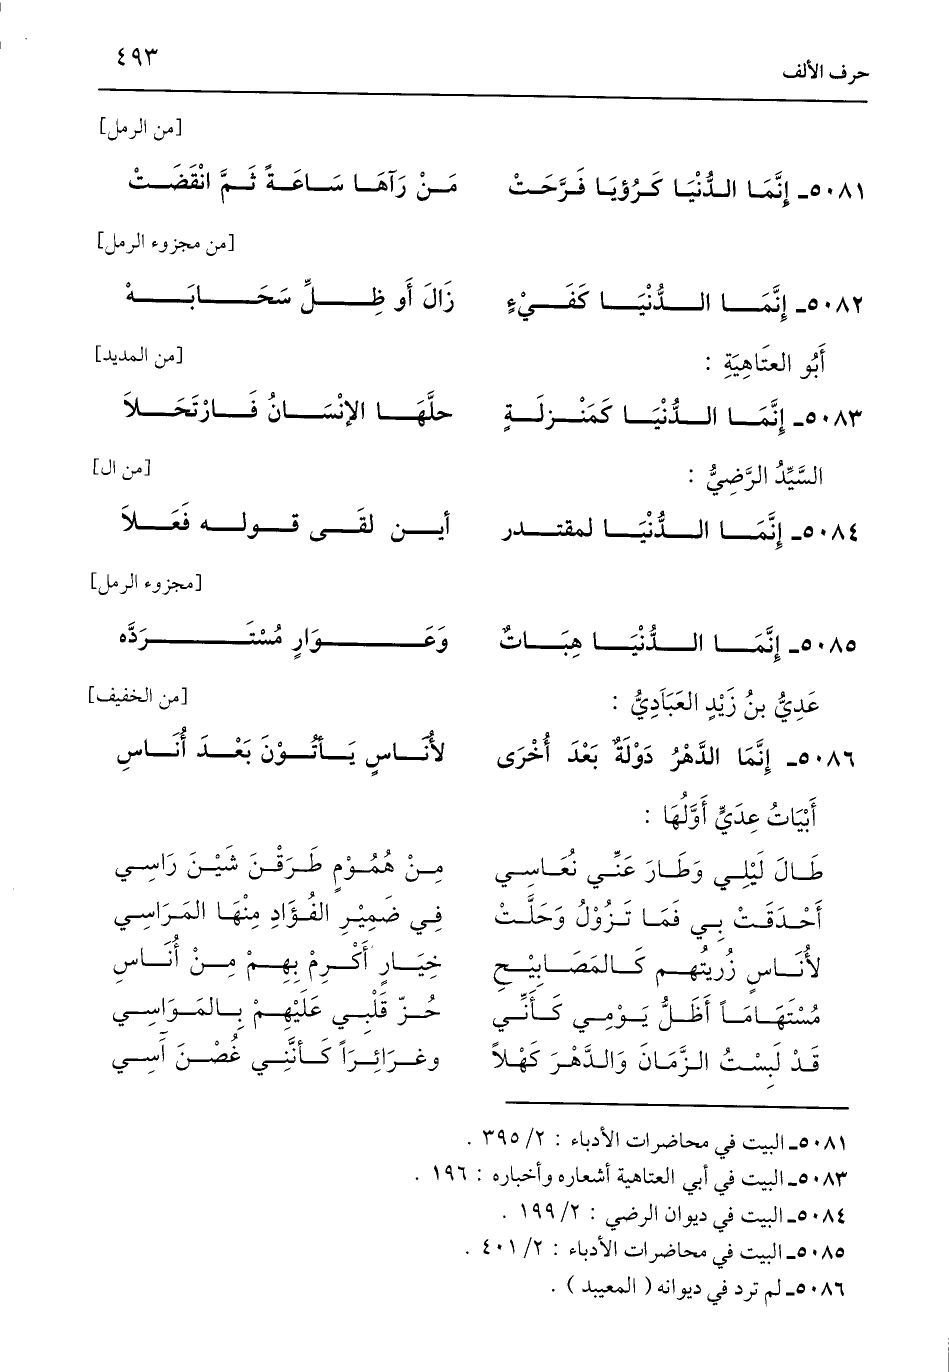 حرف الألف ٤٩٣
[من الرمل]
٥٠٨١ـ إِنَّمَا الدُّنْيَا كَرُؤيَا فَرَّحَتْ مَنْ رَآهَا سَاعَةً ثَمَّ انْقَضَتْ
[من مجزوء الرمل]
٥٠٨٢ـ إِنَّمَا الدُّنْيَا كَفَيْءٍ زَالَ أَو ظِلِّ سَحَابَهْ
أَبُو العتَاهِيَةِ : [من المديد]
٥٠٨٣ـ إِنَّمَا الدُّنْيَا كَمَنْزِلَةٍ حلَّهَا الإنْسَانُ فَارْتَحَلاَ
السَّيِّدُ الرَّضِيُّ : [من ال]
٥٠٨٤ـ إِنَّمَا الدُّنْيَا لمقتدر أين لقَى قوله فَعَلاَ
[مجزوء الرمل]
٥٠٨٥ـ إِنَّمَا الدُّنْيَا هِبَاتٌ وَعَوَارٍ مُسْتَرَدَّه
عَدِيُّ بنُ زَيْدٍ العَبَادِيُّ : [من الخفيف]
٥٠٨٦ـ إِنَّمَا الدَّهْرُ دَوْلَةٌ بَعْدَ أُخْرَى لأُنَاسٍ يَأتُوْنَ بَعْدَ أُنَاسِ
أَبْيَاتُ عِدَيٍّ أَوَّلُهَا :
طَالَ لَيْلِي وَطَارَ عَنِّي نُعَاسِي مِنْ هُمُوْمٍ طَرَقْنَ شَيْنَ رَاسِي
أَحْدَقَتْ بِي فَمَا تَزُوْلُ وَحَلَّتْ فِي ضَمِيْرِ الفُؤَادِ مِنْهَا المَرَاسِي
لأُنَاسٍ زُريتُهم كَالمَصَابِيْحِ خِيَارٍ أَكْرِمْ بِهِمْ مِنْ أُنَاسِ
مُسْتَهَامَاً أَظَلُّ يَوْمِي كَأَنِّي حُزّ قَلْبِي عَلَيْهِمْ بِالمَوَاسِي
قَدْ لَبِسْتُ الزَّمَانَ وَالدَّهْرَ كَهْلاً وغرَائِرَاً كَأنَّنِي غُصْنَ آسِي
٥٠٨١ـ البيت في محاضرات الأدباء : ٢/ ٣٩٥ .
٥٠٨٣ـ البيت في أبي العتاهية أشعاره وأخباره : ١٩٦ .
٥٠٨٤ـ البيت في ديوان الرضي : ٢/ ١٩٩ .
٥٠٨٥ـ البيت في محاضرات الأدباء : ٢/ ٤٠١ .
٥٠٨٦ـ لم ترد في ديوانه ( المعيبد ) .